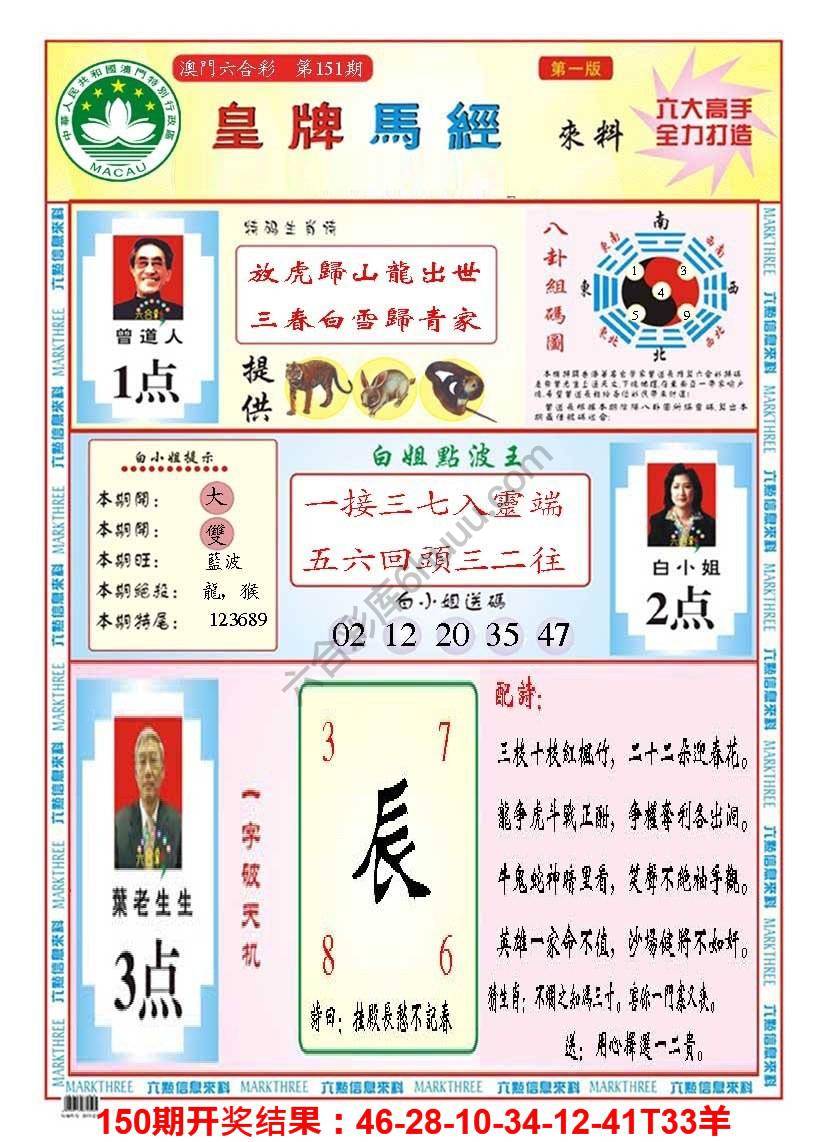 澳門六合彩 第151期
第一版
中華人民共和國澳門特別行政區
MACAU
皇牌馬經
來料
六大高手
全力打造
曾道人
1点
特码生肖诗
放虎歸山龍出世
三春白雪歸青家
提供
八卦組碼圖
南
東南
西南
東
西
東北
西北
北
1 3
4
5 9
白小姐提示
本期開： 大
本期開： 雙
本期旺： 藍波
本期絕殺： 龍，猴
本期特尾： 123689
白姐點波王
一接三七入靈端
五六回頭三二往
白小姐送碼
02 12 20 35 47
白小姐
2点
葉老生生
3点
一字破天机
3 7
辰
8 6
詩曰：挂殿長愁不記春
配詩：
三枝十枝紅楓竹，二十二朵迎春花。
龍争虎斗戰正酣，争權奪利各出洞。
牛鬼蛇神睛里看，笑聲不絶袖手觀。
英雄一家命不值，沙場健將不如奸。
送：用心擇選一二貴。
六點信息來料 MARKTHREE
六合彩库6huuu.com
150期开奖结果：46-28-10-34-12-41T33羊